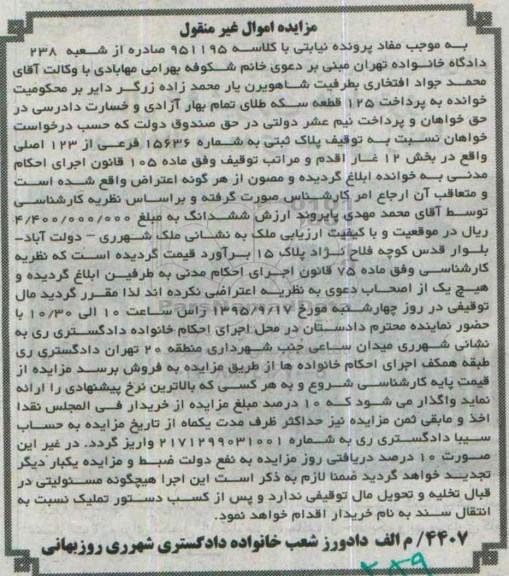 مزایده اموال غیر منقول
به موجب مفاد پرونده نیابتی با کلاسه ۹۵۱۱۹۵ صادره از شعبه ۲۳۸
دادگاه خانواده تهران مبنی بر دعوی خانم شکوفه بهرامی مهابادی با وکالت آقای
محمد جواد افتخاری بطرفیت شاهویرن یار محمد زاده زرگر دایر بر محکومیت
خوانده به پرداخت ۱۲۵ قطعه سکه طلای تمام بهار آزادی و خسارت دادرسی در
حق خواهان و پرداخت نیم عشر دولتی در حق صندوق دولت که حسب درخواست
خواهان نسبت به توقیف پلاک ثبتی به شماره ۱۵۶۳۶ فرعی از ۱۲۳ اصلی
واقع در بخش ۱۲ غار اقدم و مراتب توقیف وفق ماده ۱۰۵ قانون اجرای احکام
مدنی به خوانده ابلاغ گردیده و مصون از هر گونه اعتراض واقع شده است
و متعاقب آن ارجاع امر کارشناس صورت گرفته و براساس نظریه کارشناسی
توسط آقای محمد مهدی پایروند ارزش ششدانگ به مبلغ ۴/۴۰۰/۰۰۰/۰۰۰
ریال در موقعیت و با کیفیت ارزیابی ملک به نشانی ملک شهرری – دولت آباد-
بلوار قدس کوچه فلاح نژاد پلاک ۱۵ برآورد قیمت گردیده است که نظریه
کارشناسی وفق ماده ۷۵ قانون اجرای احکام مدنی به طرفین ابلاغ گردیده و
هیچ یک از اصحاب دعوی به نظریه اعتراضی نکرده اند لذا مقرر گردید مال
توقیفی در روز چهارشنبه مورخ ۱۳۹۵/۹/۱۷ راس ساعت ۱۰ الی ۱۰/۳۰ با
حضور نماینده محترم دادستان در محل اجرای احکام خانواده دادگستری ری به
نشانی شهرری میدان ساعی جنب شهرداری منطقه ۲۰ تهران دادگستری ری
طبقه همکف اجرای احکام خانواده ها از طریق مزایده به فروش برسد مزایده از
قیمت پایه کارشناسی شروع و به هر کسی که بالاترین نرخ پیشنهادی را ارائه
نماید واگذار می شود که ۱۰ درصد مبلغ مزایده از خریدار فی المجلس نقدا
اخذ و مابقی ثمن مزایده نیز حداکثر ظرف مدت یکماه از تاریخ مزایده به حساب
سیبا دادگستری ری به شماره ۲۱۷۱۲۹۹۰۳۱۰۰۱ واریز گردد. در غیر این
صورت ۱۰ درصد دریافتی روز مزایده به نفع دولت ضبط و مزایده یکبار دیگر
تجدید خواهد گردید ضمنا لازم به ذکر است این اجرا هیچگونه مسئولیتی در
قبال تخلیه و تحویل مال توقیفی ندارد و پس از کسب دستور تملیک نسبت به
انتقال سند به نام خریدار اقدام خواهد نمود.
۴۴۰۷/ م الف دادورز شعب خانواده دادگستری شهرری روزبهانی